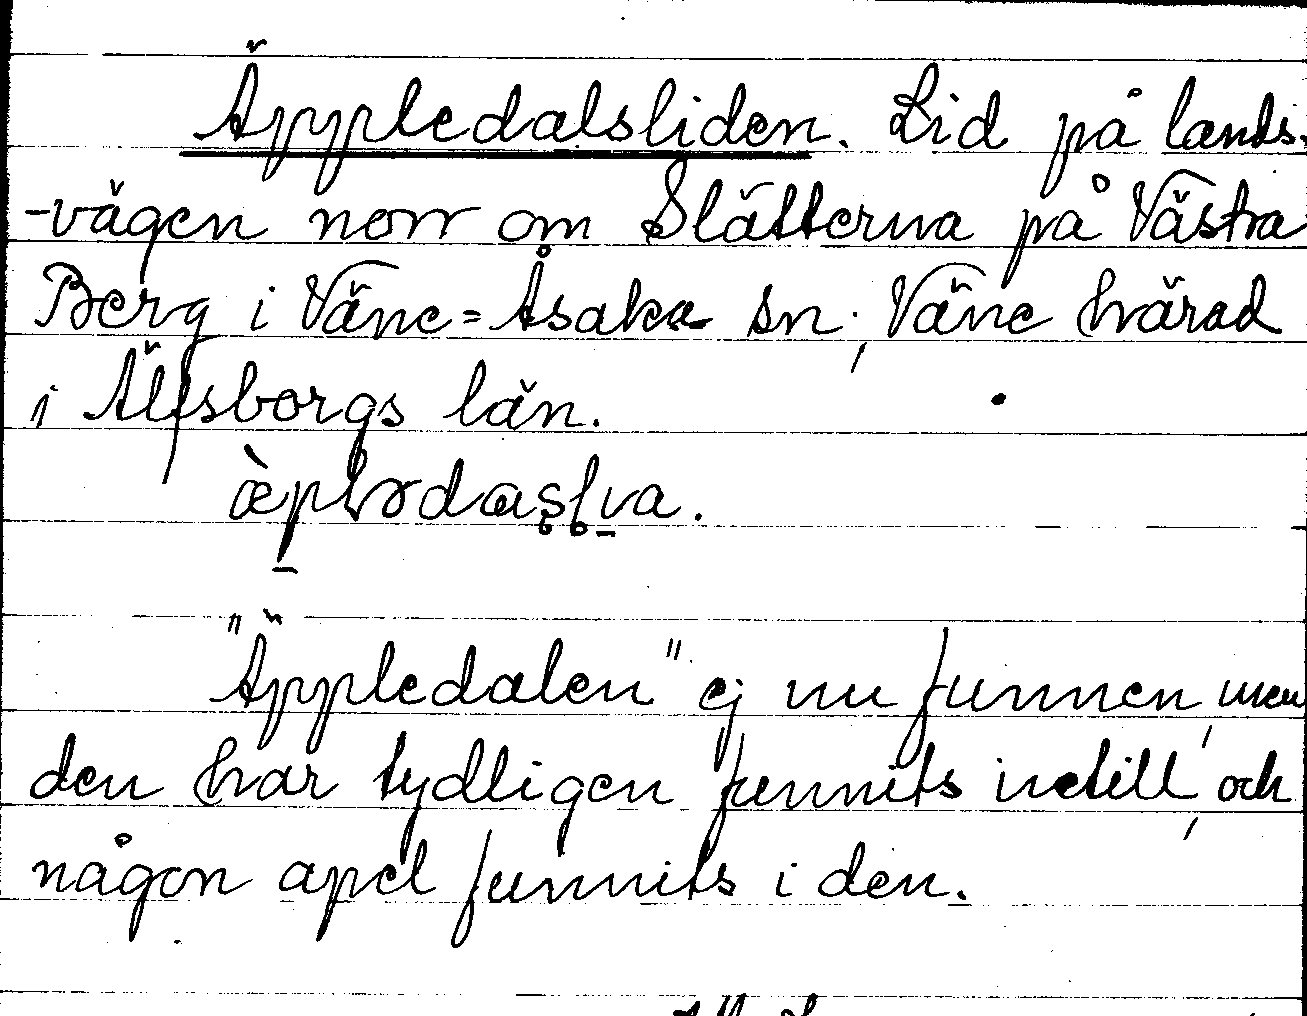 Äppledalsliden. Lid på lands-
-vägen norr om Slätterna på Västra
Berg i Väne=Åsaka sn, Väne härad
i Älfsborgs län.
"Äppledalen" ej nu funnen, men
den har tydligen funnits intill, och
någon apel funnits i den.